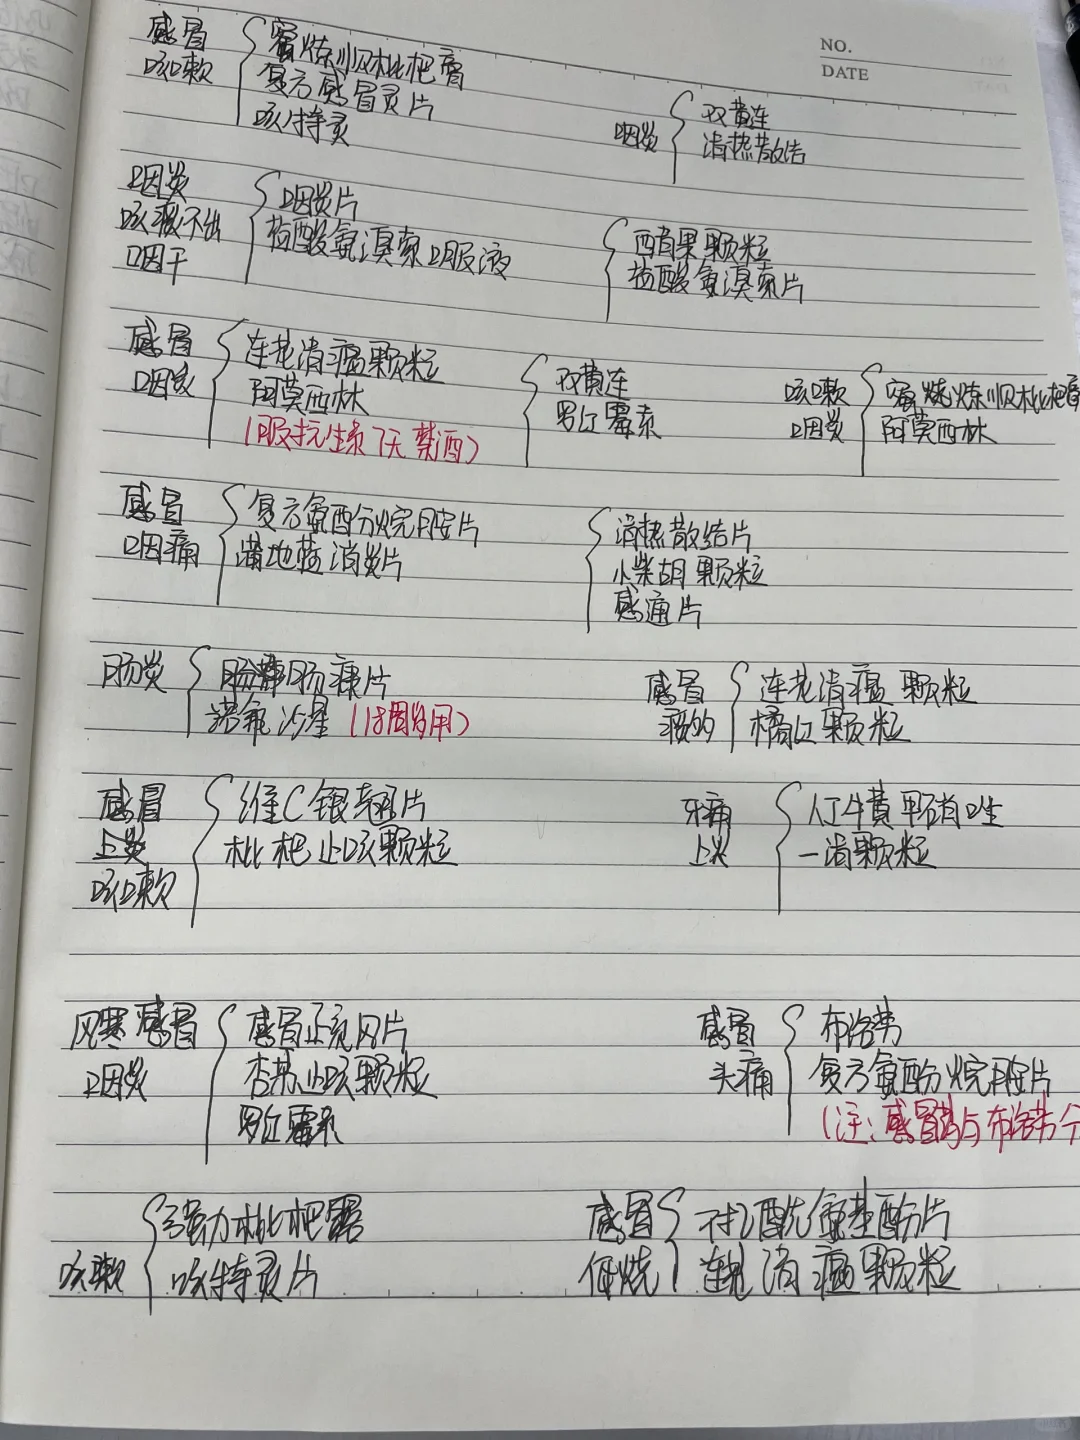 NO.
DATE
感冒
咳嗽
蜜炼川贝枇杷膏
复方感冒灵片
咳特灵
咽炎
双黄连
清热散结
咽炎
咳痰不出
咽干
咽炎片
盐酸氨溴索口服液
西青果颗粒
盐酸氨溴索片
感冒
咽炎
连花清瘟颗粒
阿莫西林
(服抗生素7天禁酒)
双黄连
罗红霉素
咳嗽
咽炎
蜜炼川贝枇杷膏
阿莫西林
感冒
咽痛
复方氨酚烷胺片
蒲地蓝消炎片
清热散结片
小柴胡颗粒
感通片
肠炎
肠炎
诺氟沙星 (18周岁用)
感冒
痰的
连花清瘟颗粒
橘红颗粒
感冒
上炎
咳嗽
维C银翘片
枇杷止咳颗粒
牙痛
上火
人工牛黄甲硝唑
一清颗粒
风寒感冒
咽炎
感冒止咳片
杏苏止咳颗粒
罗红霉素
感冒
头痛
布洛芬
复方氨酚烷胺片
(注:感冒药与布洛芬分
咳嗽
强力枇杷露
咳特灵片
感冒
低烧
对乙酰氨基酚片
连花清瘟颗粒